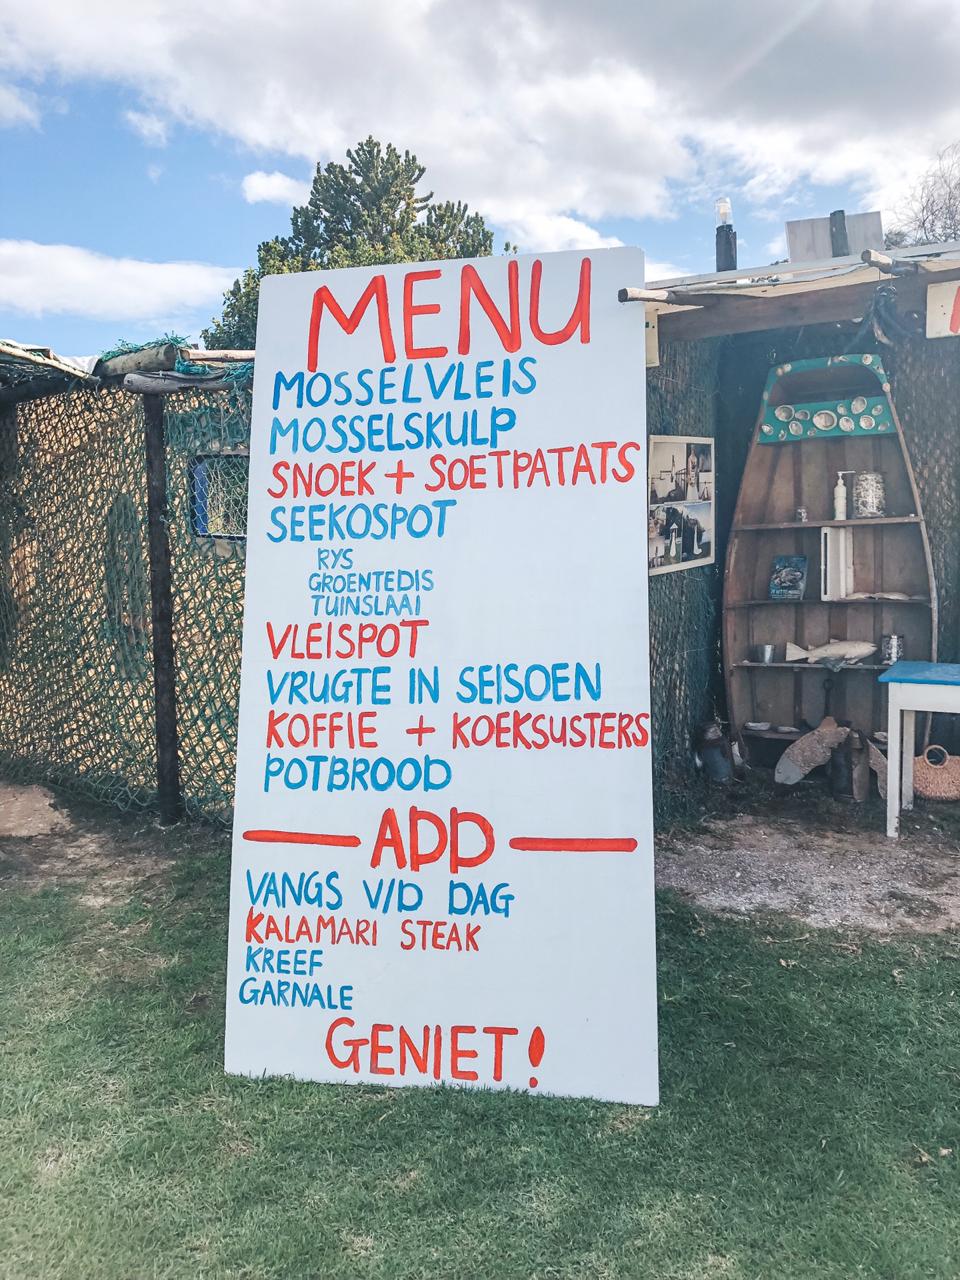 MENU
MOSSELVLEIS
MOSSELSKULP
SNOEK + SOETPATATS
SEEKOSPOT
RYS
GROENTEDIS
TUINSLAAI
VLEISPOT
VRUGTE IN SEISOEN
KOFFIE + KOEKSUSTERS
POTBROOD
ADD
VANGS V/D DAG
KALAMARI STEAK
KREEF
GARNALE
GENIET!